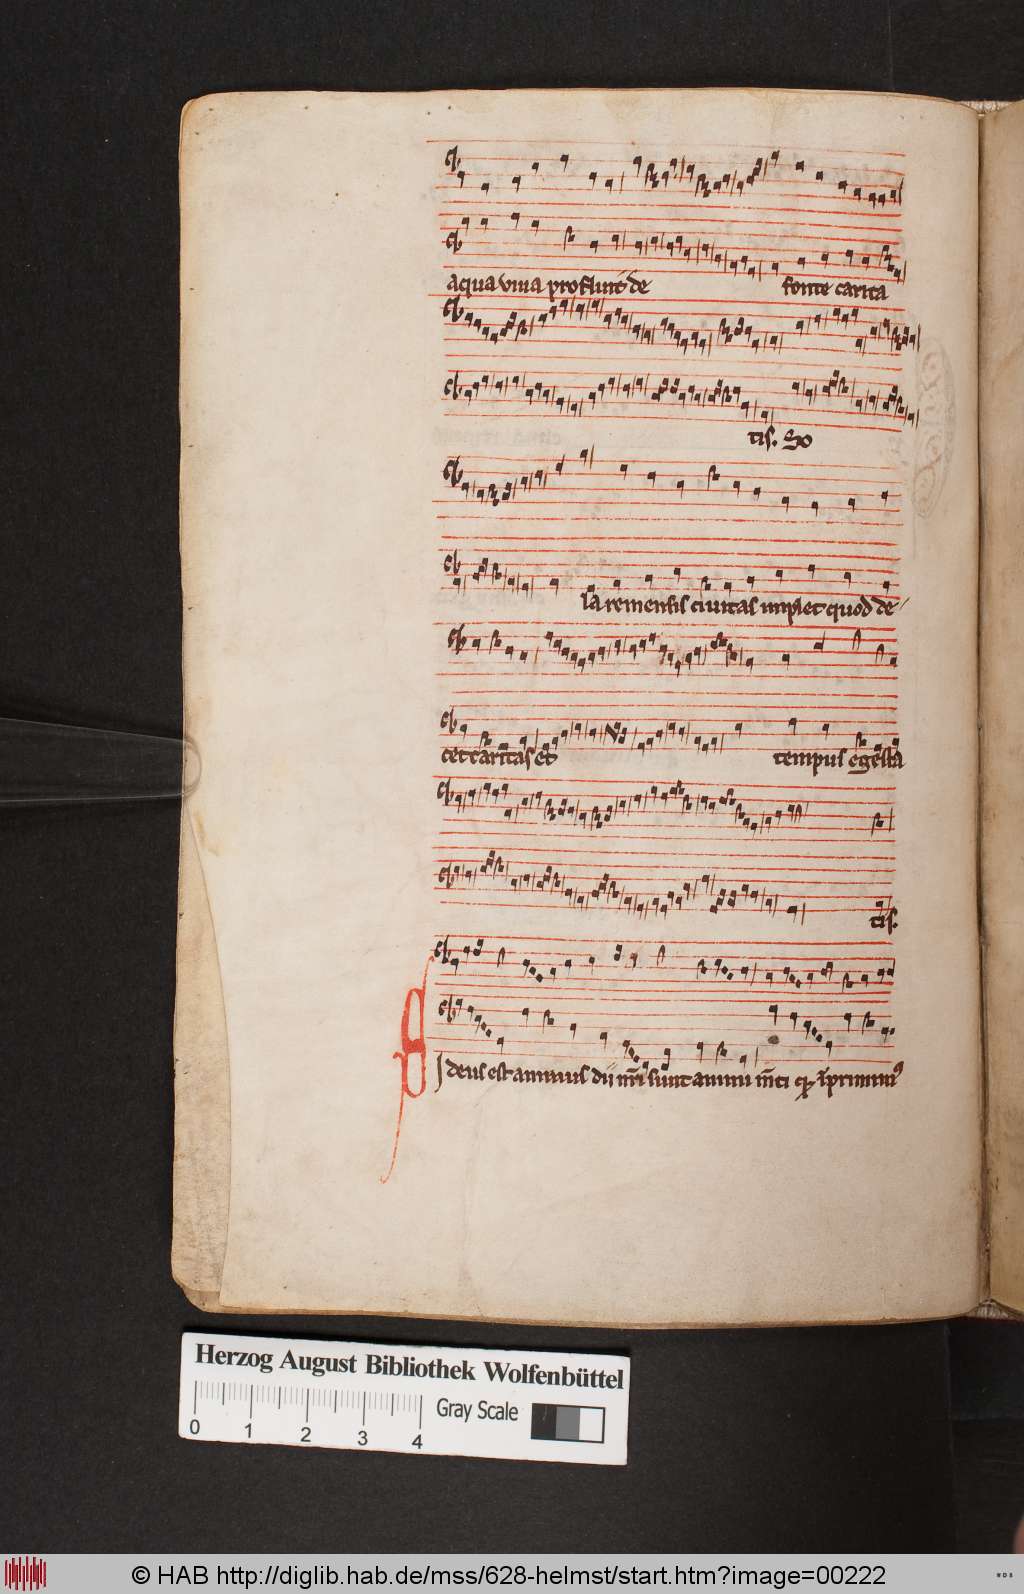 aqua viva profluit de fonte carita
tis. So
la remensis civitas implet quod de
cet caritas et tempus egesta
tis.
I deus est animus dii nr̄i sunt animi
Herzog August Bibliothek Wolfenbüttel
0 1 2 3 4
Gray Scale
© HAB http://diglib.hab.de/mss/628-helmst/start.htm?image=00222